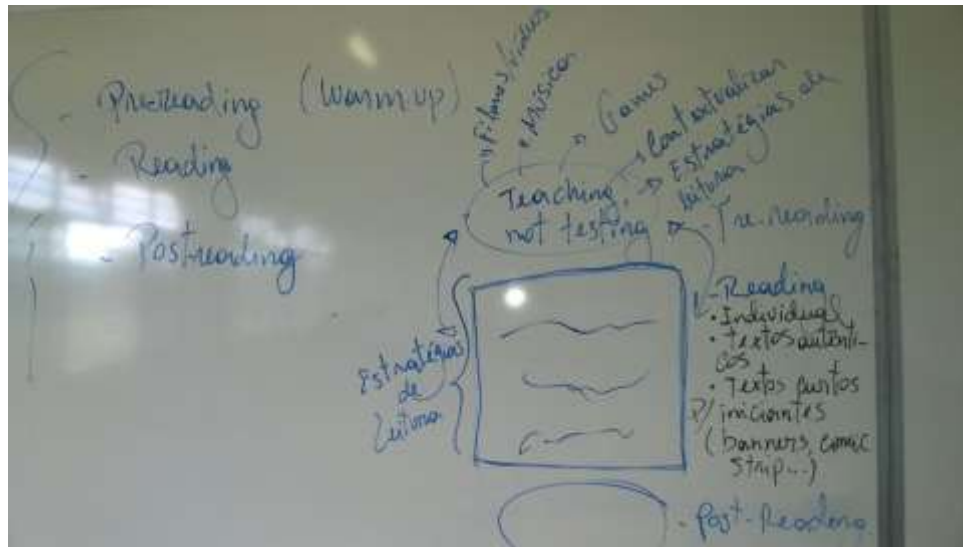 - Pre-reading (Warm up)
- Reading
- Post-reading
Filmes/vídeos
Músicas
Games
Contextualizar
Estratégias de
leitura
Teaching,
not testing
- Pre-reading
- Reading
• Individual
• Textos autênti-
cos
• Textos curtos
p/ iniciantes
(banners, comic
strip...)
Estratégias
de
leitura
- Post-Reading